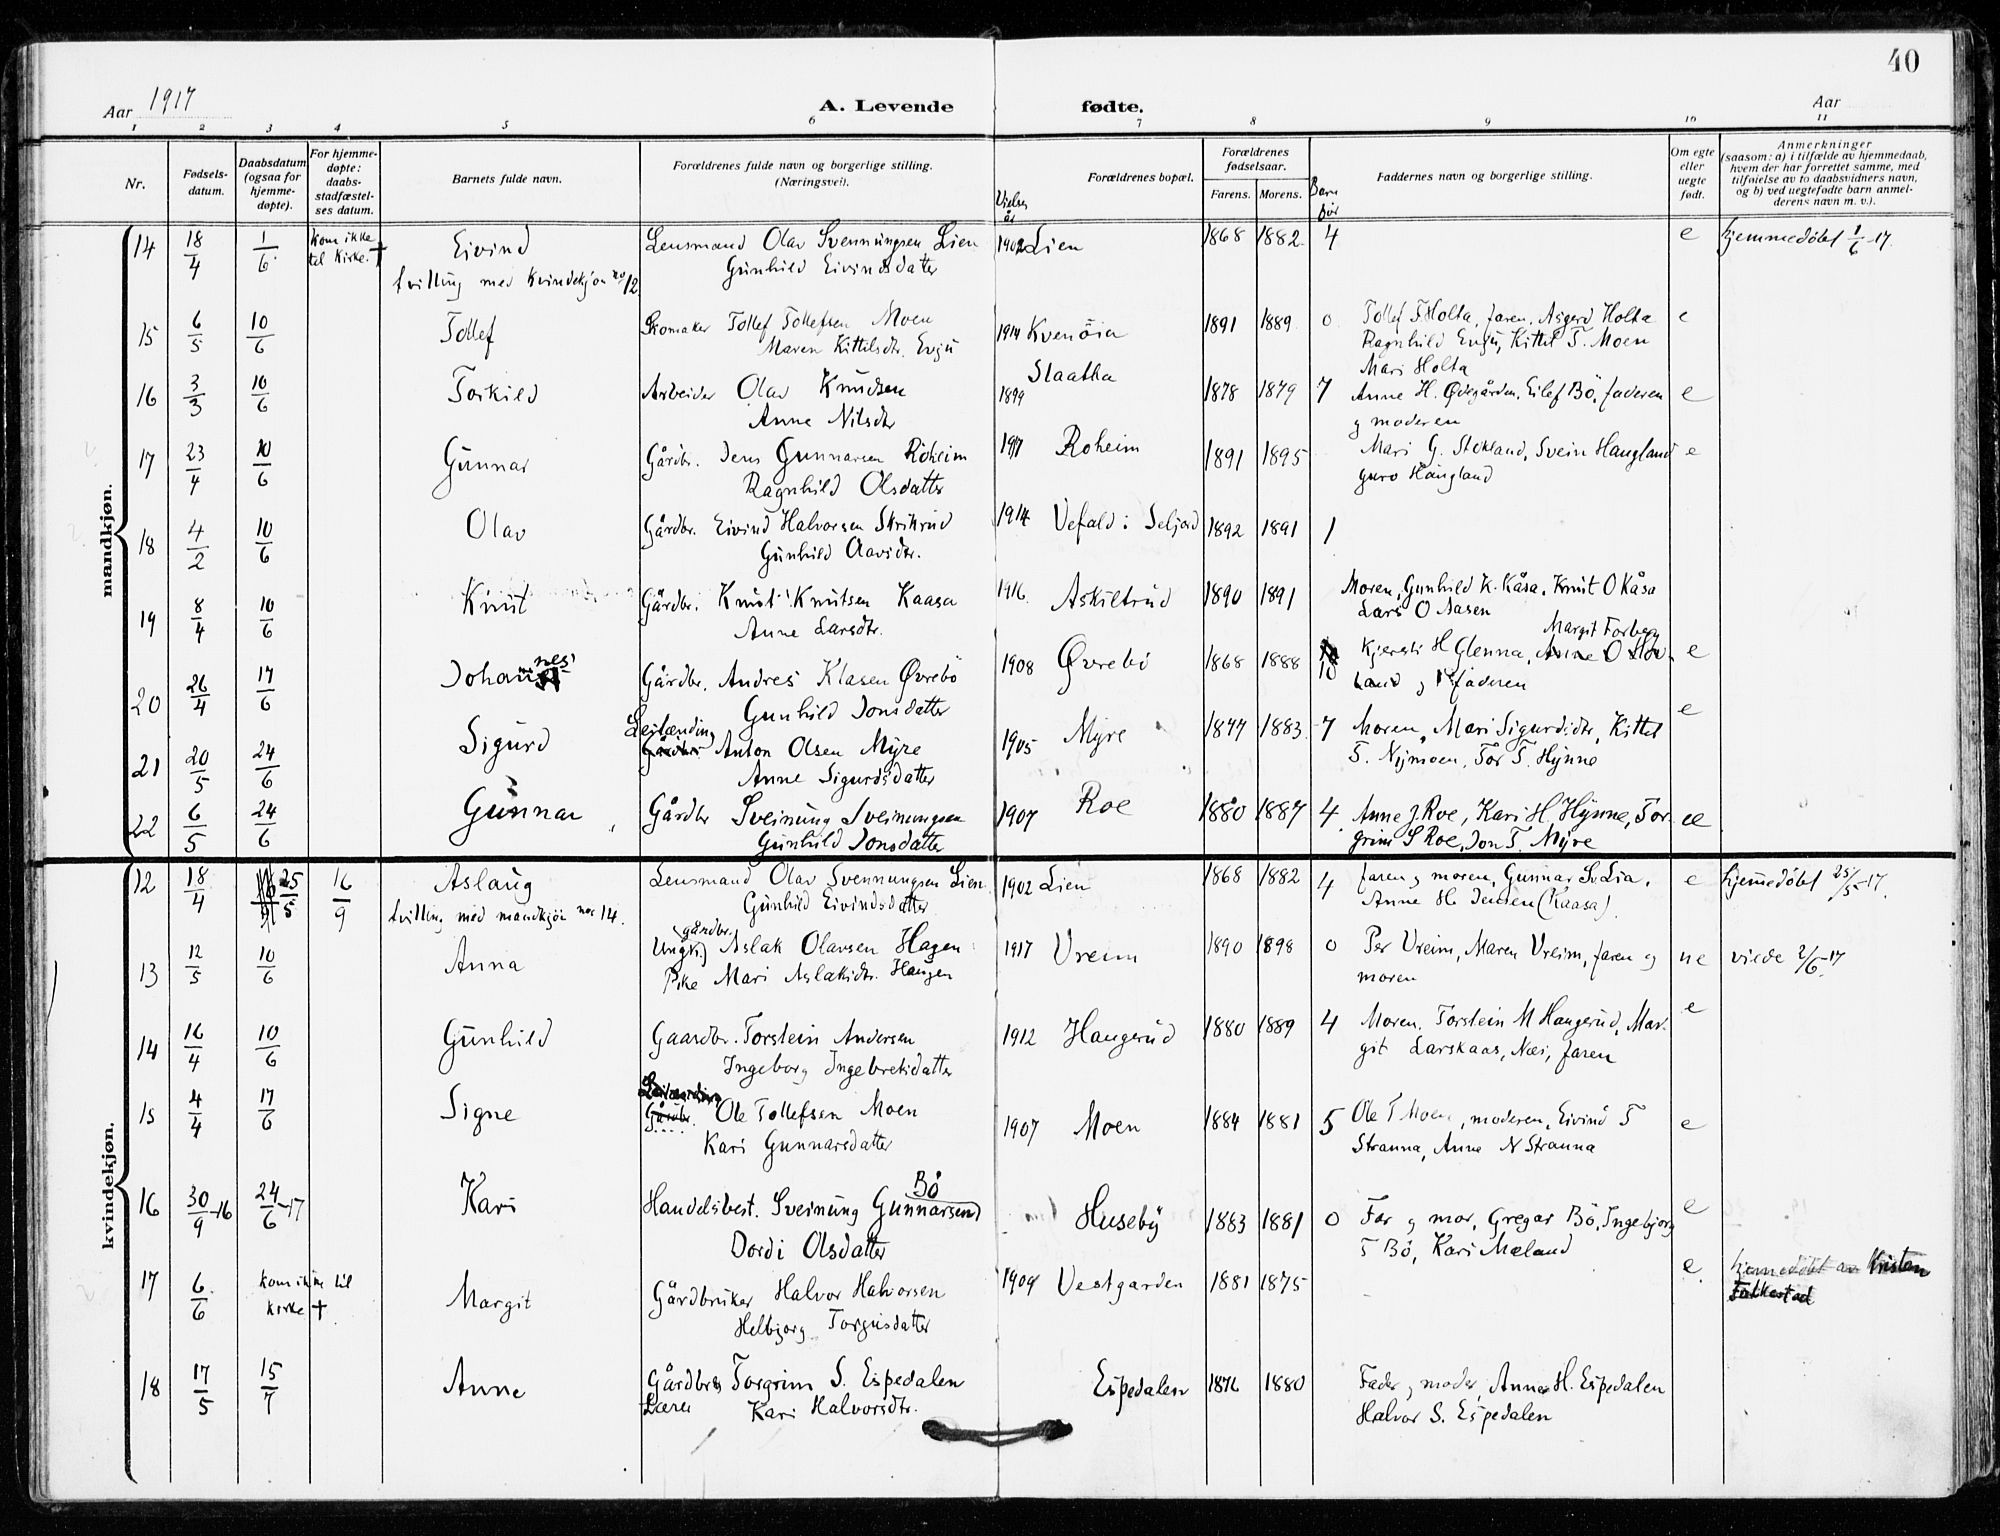 40
Aar 1917
A. Levende fødte.
Aar
1 2 3 4 5 6 7 8 9 10 11
Nr.
Fødsels-
datum.
Daabsdatum
(ogsaa for
hjemme-
døpte).
For hjemme-
døpte:
daabs-
stadfæstel-
ses datum.
Barnets fulde navn.
Forældrenes fulde navn og borgerlige stilling.
(Næringsvei).
Vielses
år
Forældrenes bopæl.
Forældrenes
fødselsaar.
Farens. Morens.
Barn
før
Faddernes navn og borgerlige stilling.
Om egte
eller
uegte
født.
Anmerkninger
(saasom: a) i tilfælde av hjemmedaab,
hvem der har forrettet samme, med
tilføielse av to daabsvidners navn,
og b) ved uegtefødte barn anmel-
derens navn m. v.).
mandkjøn.
14 18/4 1/6 kom ikke Eivind Lensmand Olav Svennungsen Lien 1902 Lien 1868 1882 4 e hjemmedøbt 1/6-17.
til Kirke. † tvilling med Kvindekjøn no 12. Gunhild Eivindsdatter
15 6/5 10/6 Tollef Skomaker Tollef Tollefsen Moen 1914 Kvenøia 1891 1889 0 Tollef T Holta, faren, Asgerd Holta e
Maren Kittilsdtr. Evju Ragnhild Evju, Kittil T. Moen
Mari Holta
16 3/3 10/6 Torkild Arbeider Olav Knudsen 1899 Slaatta 1878 1879 7 Anne H. Ødegården, Eilef Bö, faderen e
Anne Nilsdtr g moderen
17 23/4 10/6 Gunnar Gårdbr. Jens Gunnarsen Roheim 1917 Roheim 1891 1895 Mari G. Stokland, Svein Haugland e
Ragnhild Olsdatter Guro Haugland
18 4/2 10/6 Olav Gårdbr. Eivind Halvorsen Skrikrud 1914 Vefald i Seljord 1892 1891 1
Gunhild Olavsdtr.
19 8/4 10/6 Knut Gårdbr. Knut Knutsen Kaasa 1916 Askiltrud 1890 1891 Moren, Gunhild K. Kåsa, Knut O Kåsa
Anne Larsdtr. Lars O Aasen
20 26/4 17/6 Johannes Gårdbr. Andres Klasen Øvrebö 1908 Øvrebö 1868 1888 10 Kjersti H Glenna, Margit Forberg e
Gunhild Jonsdatter land g faderen
21 20/5 24/6 Sigurd Leilænding Anton Olsen Myre 1905 Myre 1877 1883 7 Moren, Mari Sigurdsdtr, Kittel e
Anne Sigurdsdatter T. Nymoen, Tor T. Hynne
22 6/5 24/6 Gunnar Gårdbr Sveinung Sveinungsen 1907 Roe 1880 1887 4 Anne J. Roe, Kari H. Hynne, Tor- e
Gunhild Jonsdatter grim S Roe, Jon T. Myre
kvindekjøn.
12 18/4 25/5 16/9 Aslaug Lensmand Olav Svennungsen Lien 1902 Lien 1868 1882 4 faren g moren, Gunnar Sv Lia, e hjemmedøbt 25/5-17.
tvilling med mandkjøn no 14. Gunhild Eivindsdatter Anne H. Jensen (Kaasa)
13 12/5 10/6 Anna Ungk. (gårdbr.) Aslak Olavsen Hagen 1917 Vreim 1890 1898 0 Per Vreim, Maren Vreim, faren g ue viede 2/6-17
Pike Mari Aslaksdtr. Haugen moren
14 16/4 10/6 Gunhild Gaardbr. Torstein Andersen 1912 Haugerud 1880 1889 4 Moren, Torstein M Haugerud, Mar- e
Ingeborg Ingebretsdatter git Larskaas, Næs, faren
15 4/4 17/6 Signe Leilænding Ole Tollefsen Moen 1907 Moen 1884 1881 5 Ole T Moen, moderen, Eivind T e
Gårdbr. Kari Gunnarsdatter Stranna, Anne N Stranna
16 30/9-16 24/6-17 Kari Handelsbest. Sveinung Gunnarsen Bö Huseby 1883 1881 0 Far g mor, Gregar Bö, Ingebjorg e
Dordi Olsdatter T Bö, Kari Mæland
17 6/6 kom ikke til Margit Gårdbruker Halvor Halvorsen 1909 Vestgarden 1881 1875 e hjemmedöbt av Kristen
kirke † Helbjorg Torgusdatter Falkestad
18 17/5 15/7 Anne Gårdbr g Torgrim S. Espedalen Espedalen 1876 1880 Fader g moder, Anne H. Espedalen
Lærer Kari Halvorsdtr. Halvor S. Espedalen